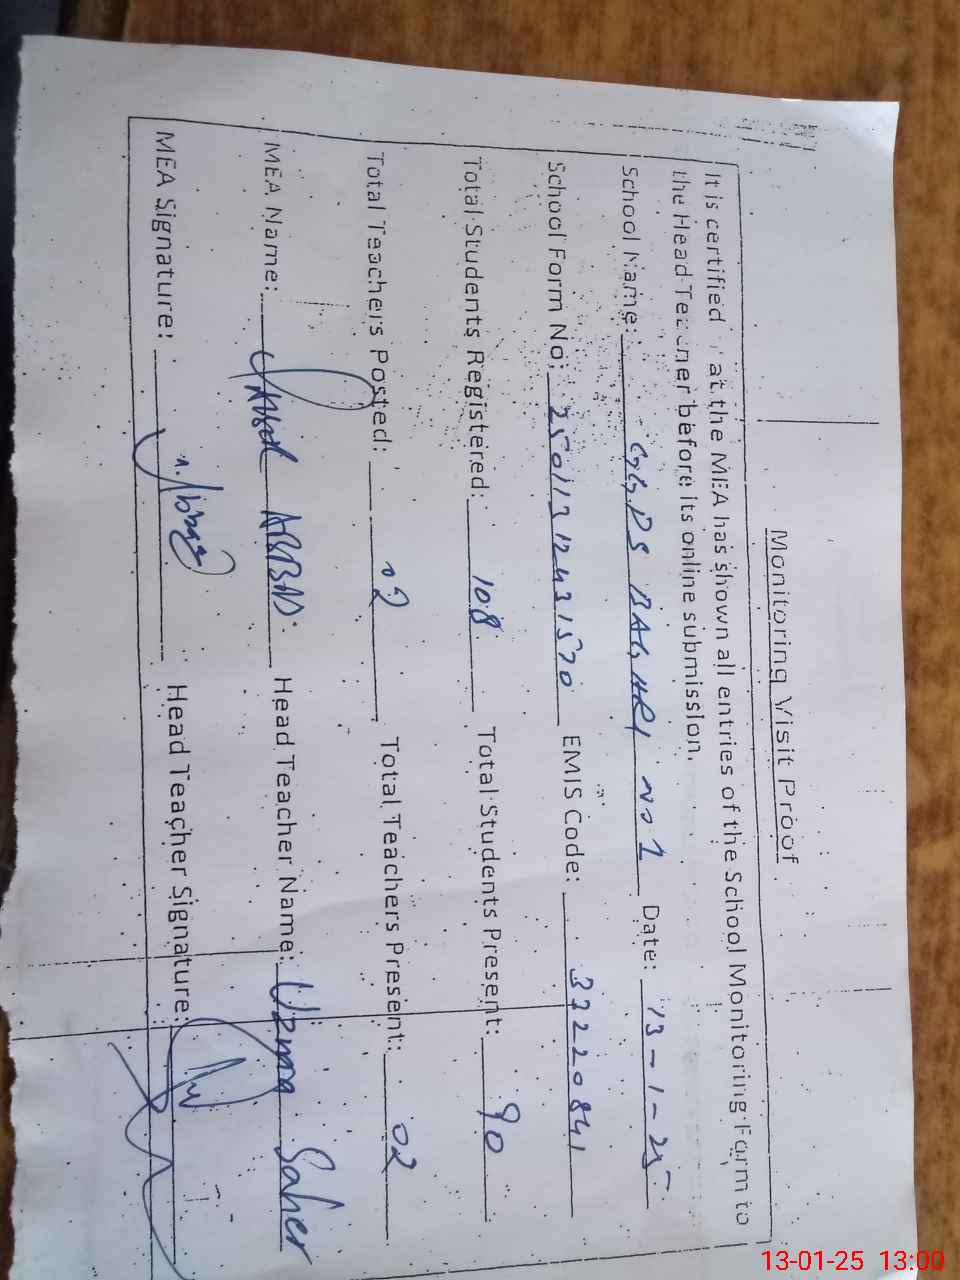 Monitoring Visit Proof
It is certified at the MEA has shown all entries of the School Monitoring Form to
the Head Teacher before its online submission.
School Name: GGPS BAGHRI No 1 Date: 13-1-25
School Form No: 25011312431570 EMIS Code: 33220841
Total Students Registered: 108 Total Students Present: 90
Total Teachers Posted: 02 Total Teachers Present: 02
MEA Name: ABBAS. Head Teacher Name: Uzma Saher
MEA Signature: Head Teacher Signature:
13-01-25 13:00